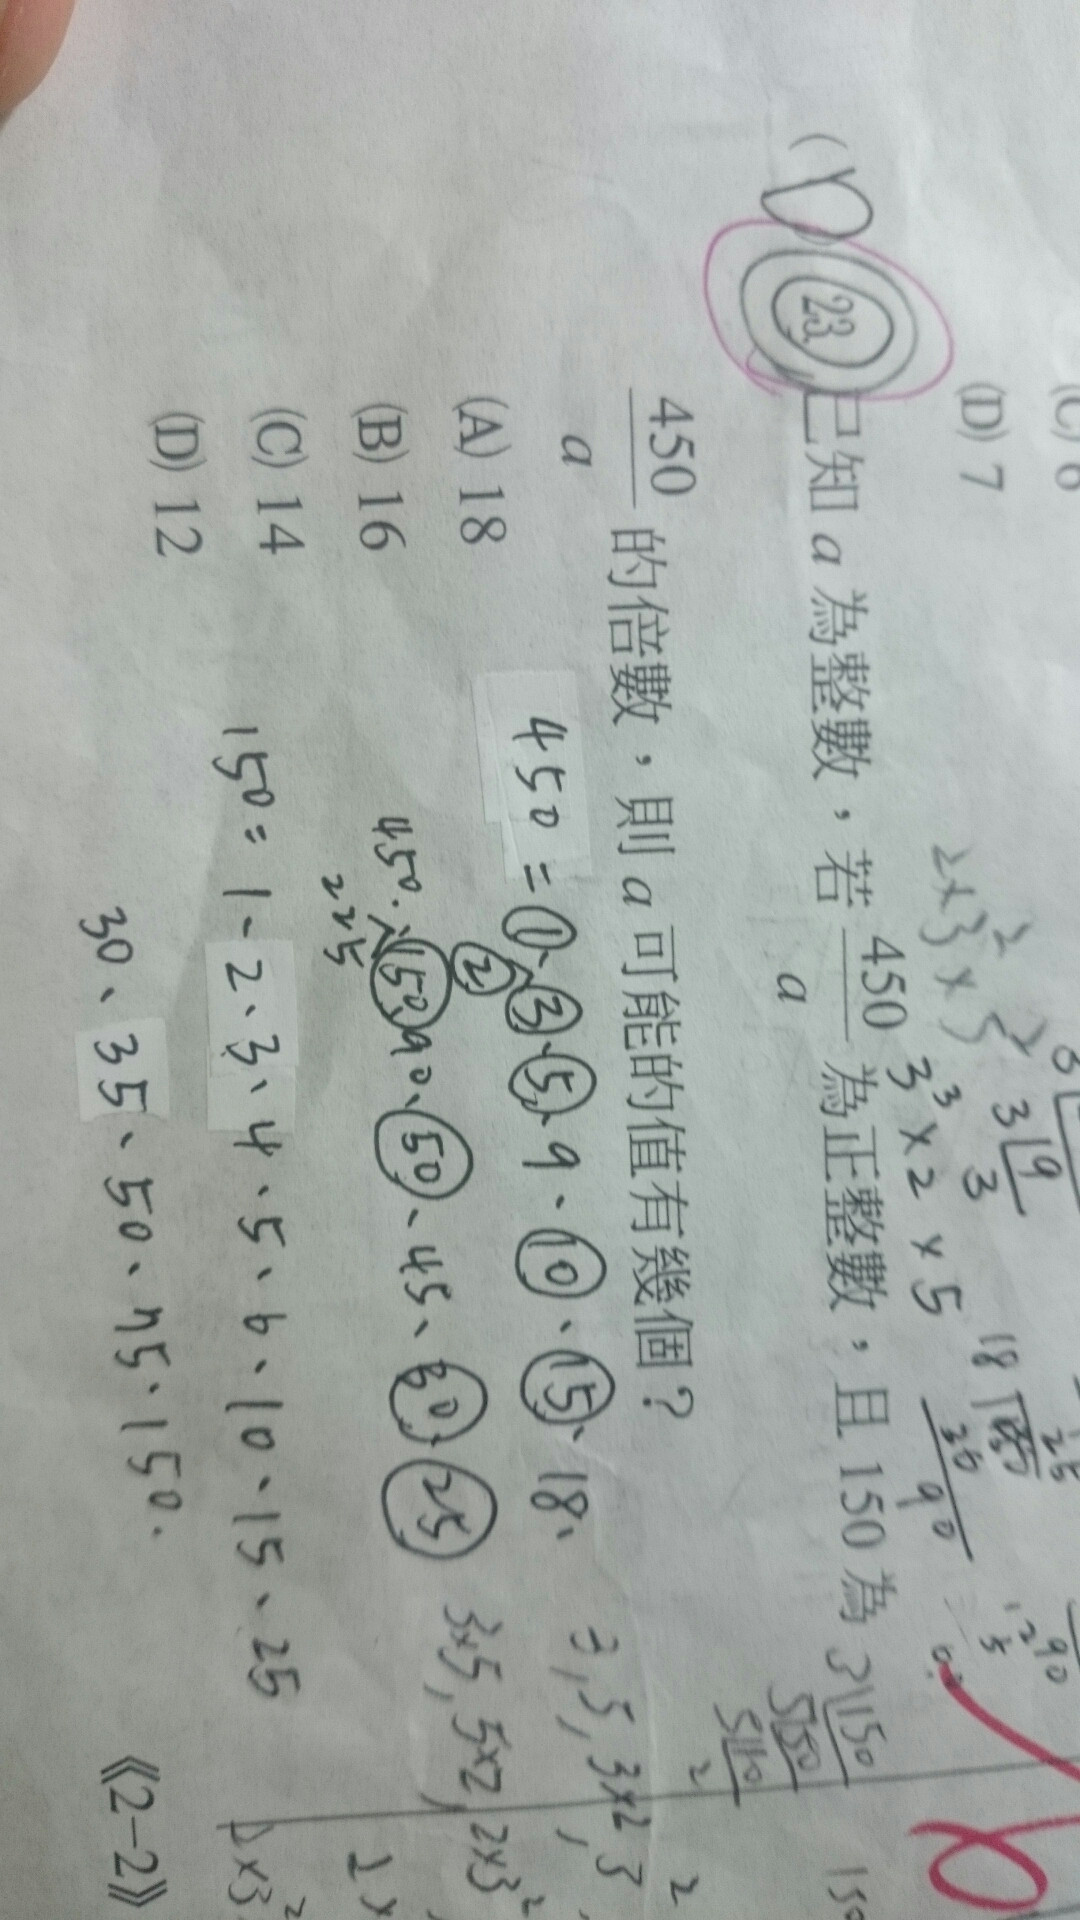 (C) 6
(D) 7
(D) 23. 已知 a 為整數，若 450/a 為正整數，且 150 為
450/a 的倍數，則 a 可能的值有幾個？
(A) 18
(B) 16
(C) 14
(D) 12
2×3²×5²
3³×2×5
3 9
3
18
90
3 150
5 50
5 10
2
450 = 1、3、5、9、10、15、18、
2
450、150、90、50、45、30、25
225
150 = 1、2、3、4、5、6、10、15、25
30、35、50、75、150.
3, 5, 3×2, 3²
3×5, 5×2, 2×3²
《2-2》